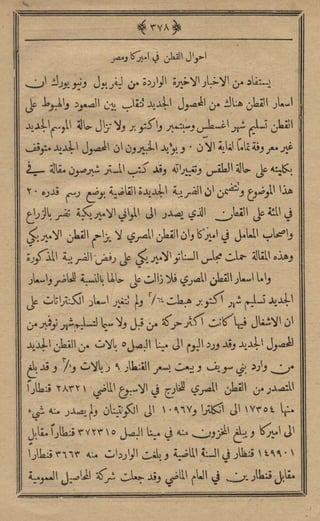 ﴿ ٣٧٨ ﴾
احوال القطن في اميركا ومصر
يستفاد من الاخبار الاخيرة الواردة من ليفربول ونيويورك ان
اسعار القطن هناك من المحصول الجديد تتقلب بين الصعود والهبوط على
القطن تسليم شهر اغسطس وسبتمبر واكتوبر ولا تزال حالة الموسم الجديد
غير معروفة تماما لغاية الآن ٠ ويؤيد الخبيرون ان المحصول الجديد متوقف
بكليته على حالة الطقس وتغييراته وقد كتب المستر شيرصون مقالة في
هذا الموضوع وتتضمن ان الضريبة الجديدة القاضية بوضع رسم قدره ٢٠
في المئة على القطن الذي يصدر الى الموانئ الاميريكية تضر بالزراع
واصحاب المعامل في اميركا وان القطن المصري لا يزاحم القطن الاميريكي
وهذه المقالة حملت مجلس السناتو الاميريكي على رفض الضريبة المذكورة
واما اسعار القطن المصري فلا زالت على حالها بالنسبة للحاضر واسعار
الجديد تسليم شهر اكتوبر هبطت ولم تتغير اسعار الكنتراتات على
ان الاشغال فيها كانت اكثر حركة من قبل ولا سيما لتسليم شهر نوفمبر من
المحصول الجديد وقد ورد اليوم الى مينا البصل ٥ بالات من القطن الجديد
من وارد بني سويف وبيعت بسعر القنطار ٩ ريالات وقد بلغ
المتصدر من القطن المصري للخارج في الاسبوع الماضي ٢٨٣٢١ قنطاراً
منها ١٧٣٥٤ الى انكلترا و١٠٩٦٧ الى الكونتينان ولم يصدر منه شيء
الى اميركا ويبلغ المخزون منه في مينا البصل ٣٧٢٣١٥ قنطاراً مقابل
١٤٩٩٠١ قنطار في السنة الماضية وبلغت الواردات منه ٣٦٦٣ قنطارا
مقابل قنطارين في العام الماضي وقد جعلت شركة المحاصيل العمومية